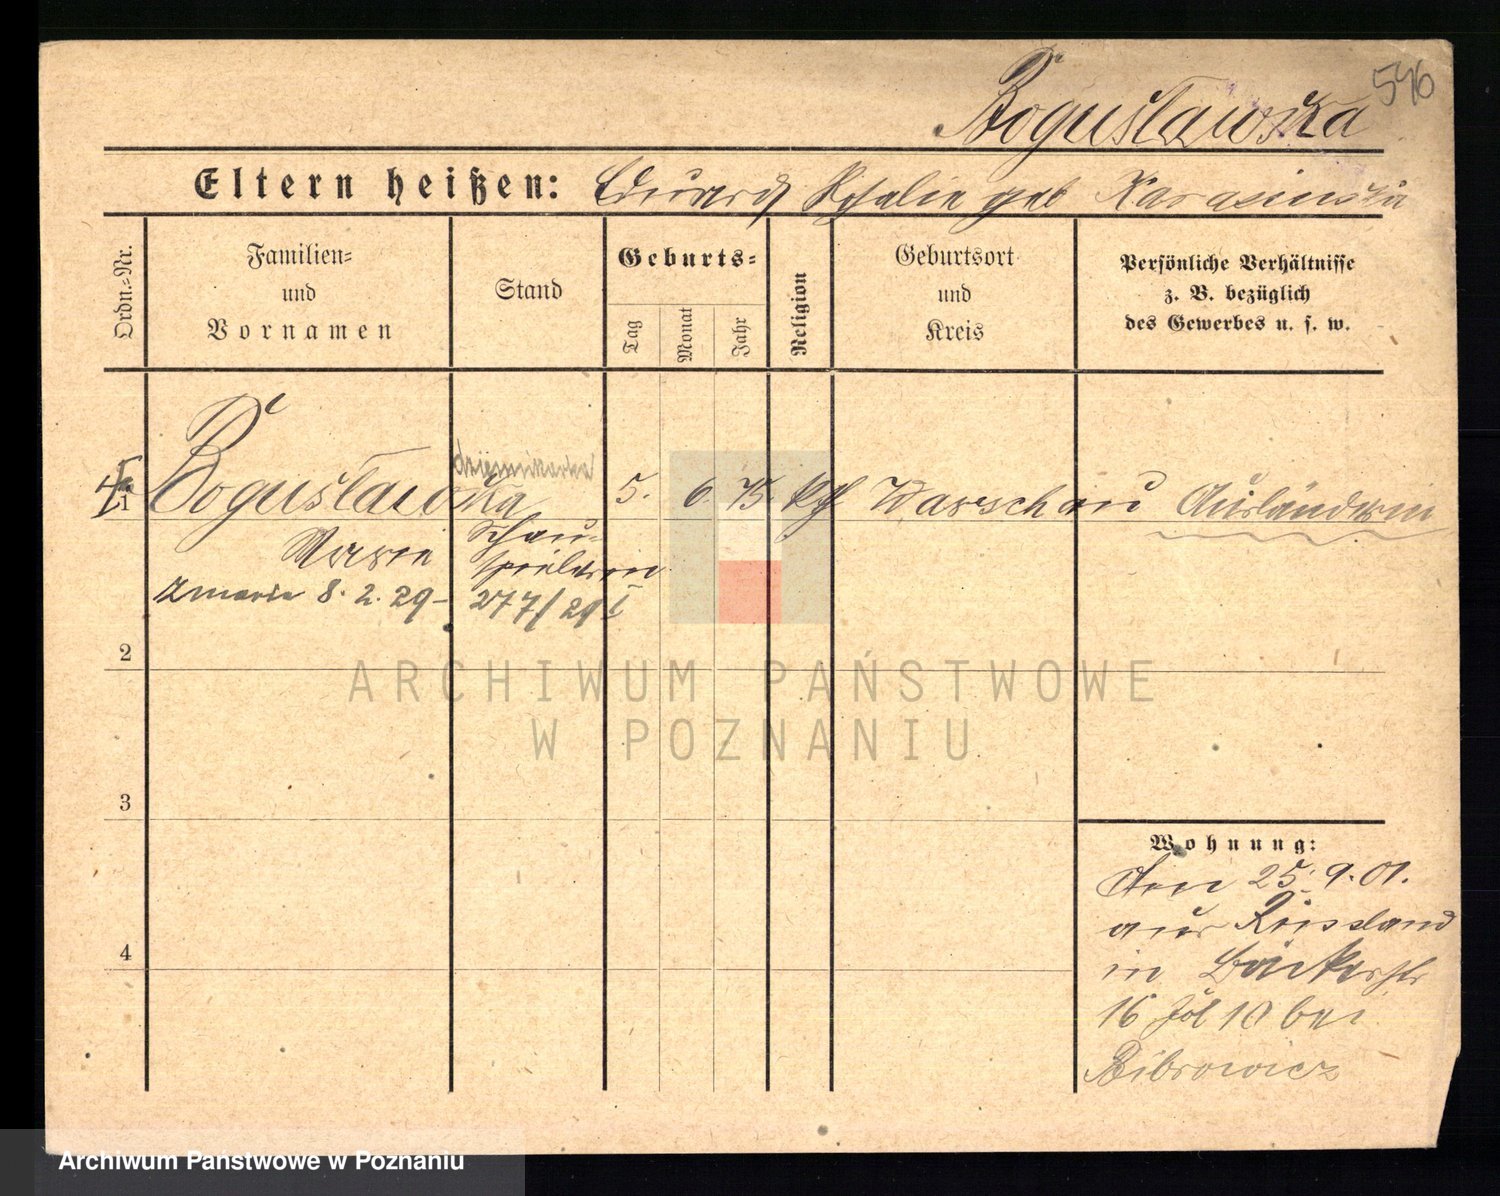 546
Bogusławska
Eltern heißen: Eduard Rosalie geb Karasinska
Ordn.=Nr.
Familien=
und
Vornamen
Stand
Geburts=
Tag
Monat
Jahr
Religion
Geburtsort
und
Kreis
Persönliche Verhältnisse
z. B. bezüglich
des Gewerbes u. s. w.
dziennikarka
1 Bogusławska 5. 6. 75. kth Warschau Ausländerin
Marie
Schau=
spielerin
zmarła 8. 2. 29 - 277/29 I
2
ARCHIWUM PAŃSTWOWE
W POZNANIU
3
Wohnung:
Den 25. 9. 01.
aus Russland
in Bäckerstr
4
16 Hol 10 bei
Bibrowicz
Archiwum Państwowe w Poznaniu